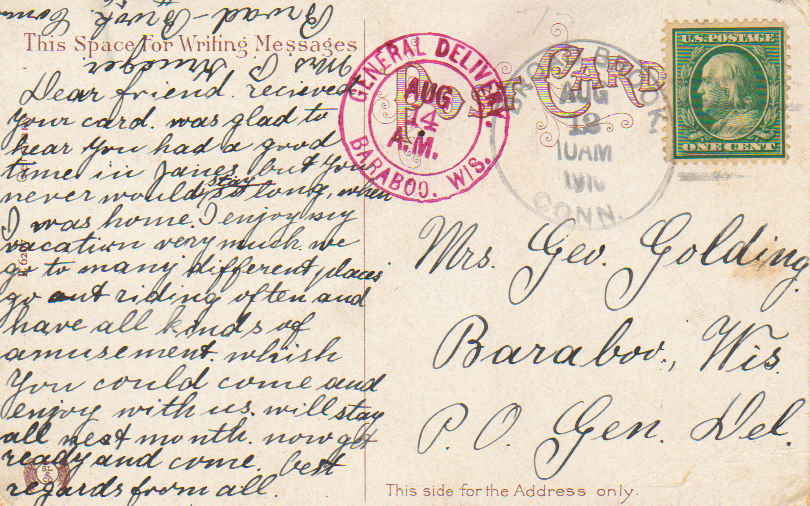 This Space for Writing Messages
Dear friend. recieved
your card. was glad to
hear you had a good
time in Janes, but you
never would stay so long, when
I was home. I enjoy my
vacation very much. we
go to many different places
go out riding often and
have all kinds of
amusement. whish
you could come and
enjoy with us. will stay
all next month. now get
ready and come. best
regards from all.
Mrs C. Krueger
Broad-Brook Conn
GENERAL DELIVERY.
AUG
14
A.M.
BARABOO. WIS.
POST CARD
BROAD BROOK
AUG
12
10AM
1910
CONN.
U.S. POSTAGE
ONE CENT
Mrs. Geo. Golding
Baraboo, Wis
P.O. Gen. Del.
This side for the Address only.